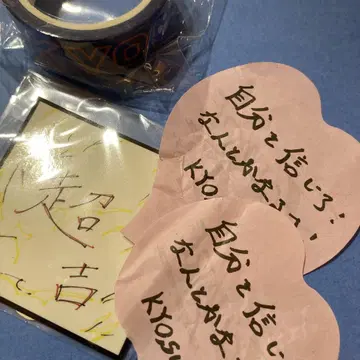 超
吉
自分を信じろ!
なんとかなるっ!
KYOS
自分を信じ
なんとかな
KYOS